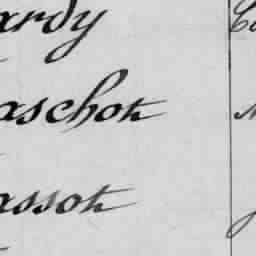 ardy
aschot
assot